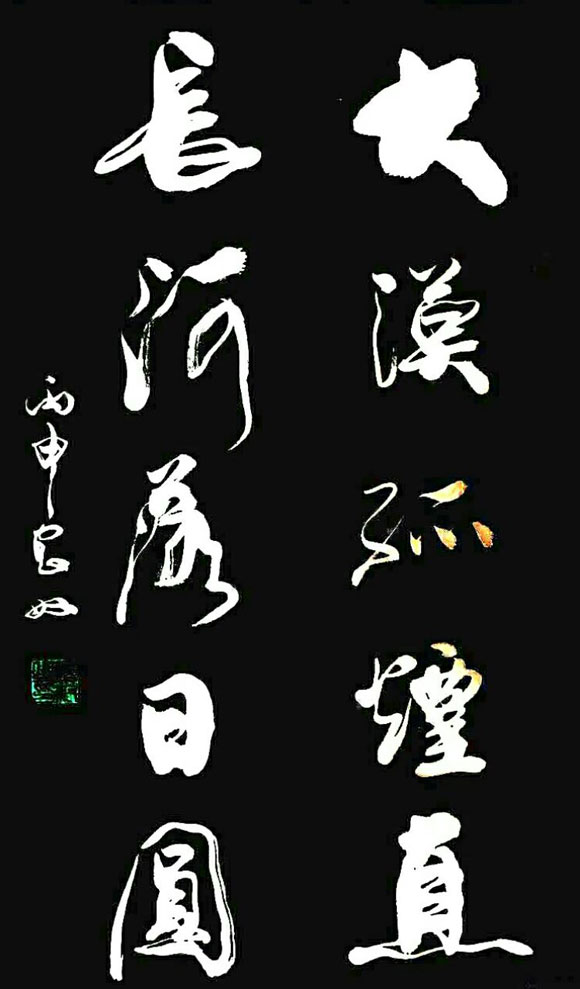 大漠孤煙直
長河落日圓
丙申